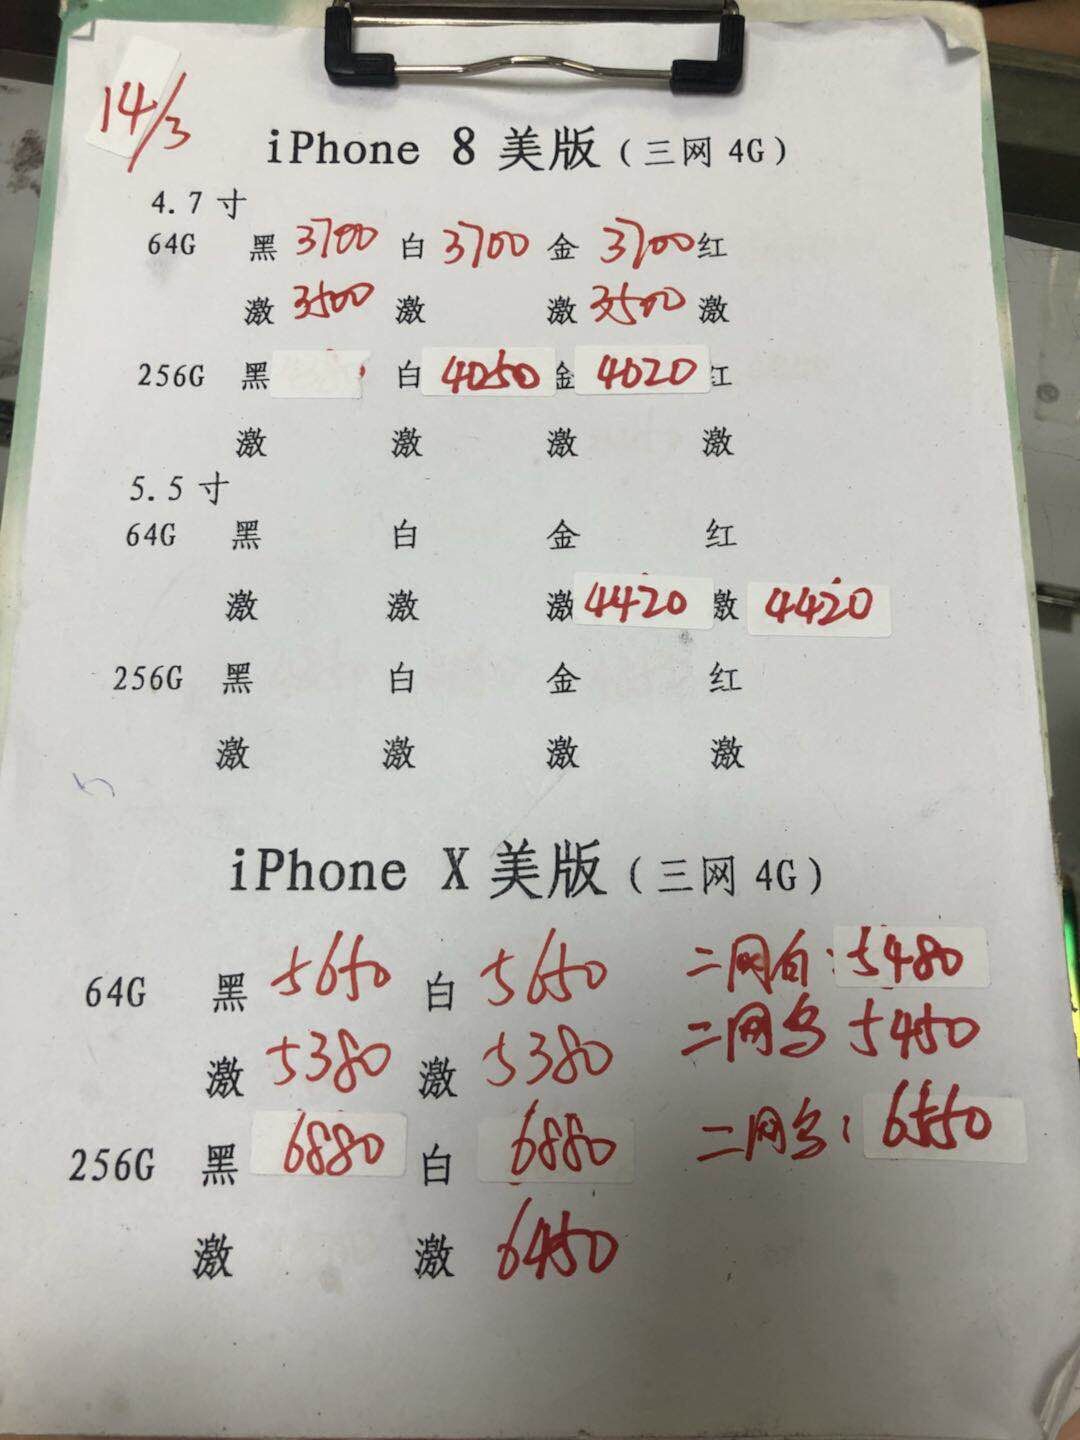 14/3
iPhone 8 美版（三网 4G）
4.7寸
64G 黑 3700 白 3700 金 3700 红
激 3500 激 激 3500 激
256G 黑 白 4050 金 4020 红
激 激 激 激
5.5寸
64G 黑 白 金 红
激 激 激 4420 激 4420
256G 黑 白 金 红
激 激 激 激
iPhone X 美版（三网 4G）
64G 黑 5650 白 5650 二网白：5480
激 5380 激 5380 二网乌 5450
256G 黑 6880 白 6880 二网乌：6550
激 激 6450